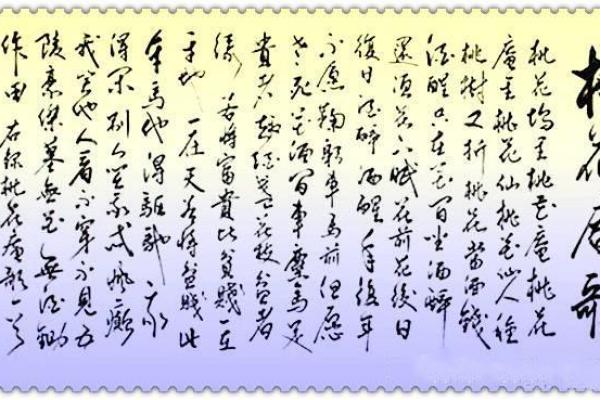 桃花庵歌
桃花塢里桃花庵桃花
庵里桃花仙桃花仙人種
桃樹又折桃花當酒錢
酒醒只在花間坐酒醉
還須花下眠花前花後日
復日酒醉酒醒年復年
不愿鞠躬車馬前但愿
老死花酒間車塵馬足
貴者趣酒盞花枝貧者
緣若將富貴比貧賤一在
平地一在天若將貧賤比
車馬他得驅馳我
得閑別人笑我忒風顛
我笑他人看不穿不見五
陵豪傑墓無花無酒鋤
作田右錄桃花庵歌一首